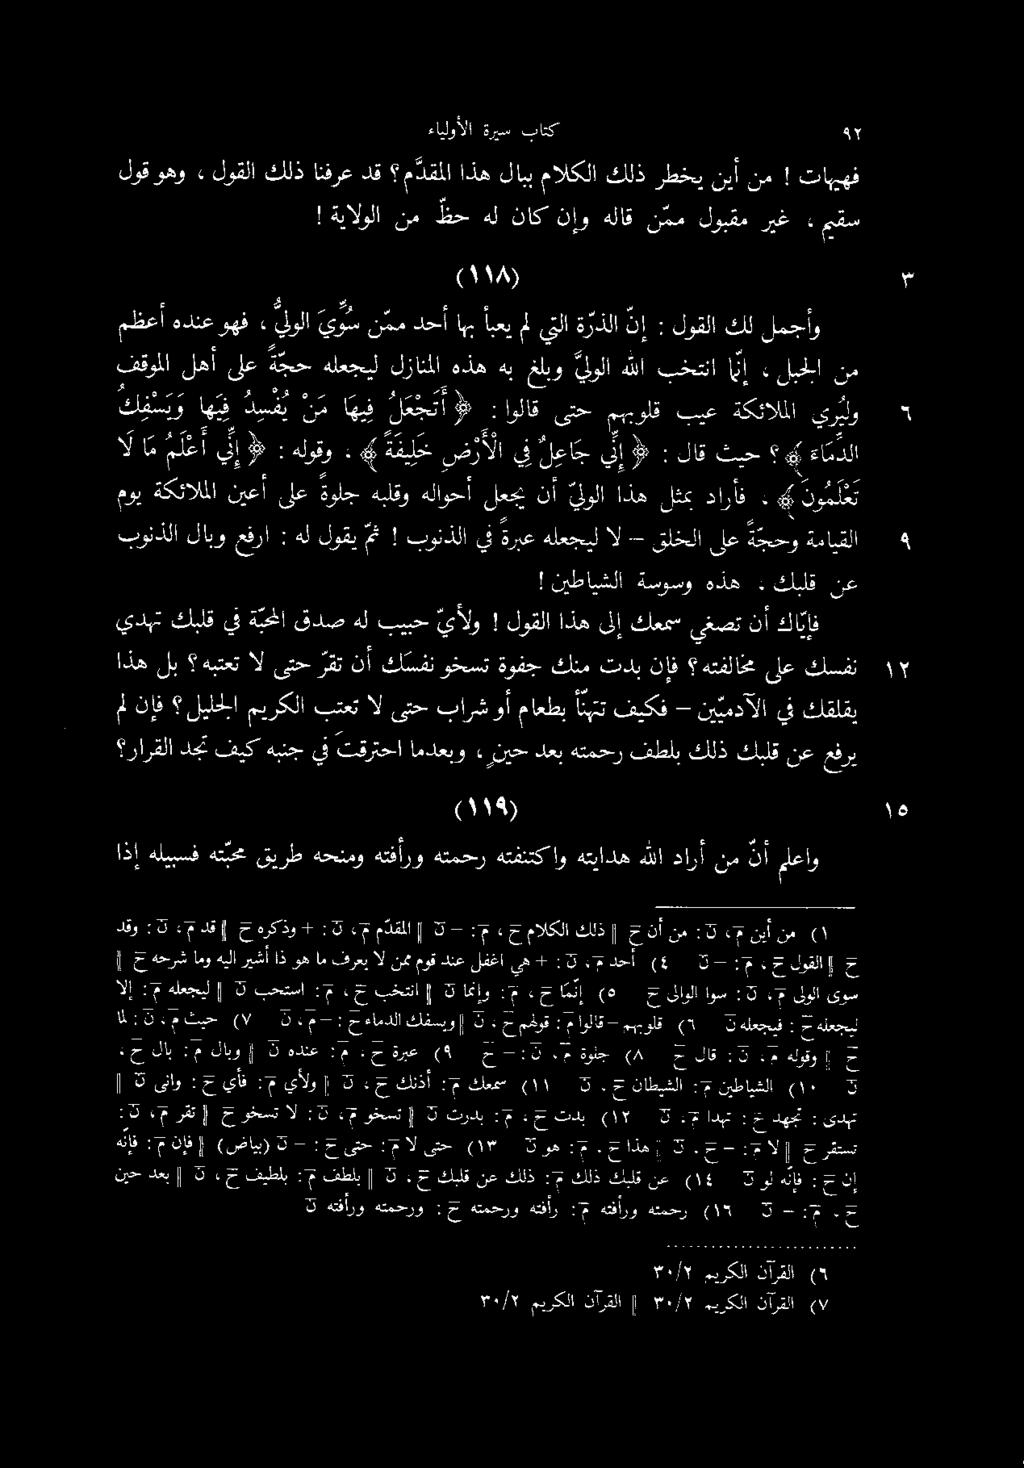 ٩٢ كتاب سيرة الأولياء
فهيهات ! من أين يخطر ذلك الكلام ببال هذا المقدّم؟ قد عرفنا ذلك القول ، وهو قول
سقيم ، غير مقبول ممّن قاله وإن كان له حظّ من الولاية !
٣ (١١٨)
وأجمل لك القول : إنّ الذرّة التي لم يعبأ بها أحد ممّن سُوِّيَ الوليُّ ، فهو عنده أعظم
من الجبل ، إنّما انتخب الله الوليَّ وبلغ به هذه المنازل ليجعله حجّةً على أهل الموقف
٦ وليُري الملائكة عيب قلوبهم حتى قالوا : ﴿ أَتَجْعَلُ فِيهَا مَنْ يُفْسِدُ فِيهَا وَيَسْفِكُ
الدِّمَاءَ ﴾ ؟ حيث قال : ﴿ إِنِّي جَاعِلٌ فِي الْأَرْضِ خَلِيفَةً ﴾ ، وقوله : ﴿ إِنِّي أَعْلَمُ مَا لَا
تَعْلَمُونَ ﴾ . فأراد بمثل هذا الوليّ أن يجعل أحواله وقلبه جلوةً على أعين الملائكة يوم
٩ القيامة وحجّةً على الخلق – لا ليجعله عبرةً في الذنوب ! ثمّ يقول له : ارفع وبال الذنوب
عن قلبك . هذه وسوسة الشياطين !
فإيّاك أن تصغي سمعك إلى هذا القول ! ولأيّ حبيب له صدق المحبّة في قلبك تهدي
١٢ نفسك على مخالفته؟ فإن بدت منك جفوة تسخو نفسك أن تقرّ حتى لا تعتبه؟ بل هذا
يقلقك في الآدميّين – فكيف تتهنّأ بطعام أو شراب حتى لا تعتب الكريم الجليل؟ فإن لم
يرفع عن قلبك ذلك بلطف رحمته بعد حينٍ ، وبعدما احترقتَ في جنبه كيف تجد القرار؟
١٥ (١١٩)
واعلم أنّ من أراد الله هدايته واكتنفته رحمته ورأفته ومنحه طريق محبّته فسبيله إذا
١) من أين م ، ن : من أن ح ‖ ذلك الكلام ح ، م : – ن ‖ المقدّم م ، ن : + وذكره ح ‖ قد م ، ن : وقد
ح ‖ القول ح ، م : – ن ٤) أحد م ، ن : + هي اغفل عند قوم ممن لا يعرف ما هو اذ أشير اليه وما شرحه ح ‖
سوى الولى م ، ن : سوا الوالى ح ٥) إنّما ح ، م : وإنما ن ‖ انتخب ح ، م : استحب ن ‖ ليجعله م : إلا
ليجعله ح : فيجعله ن ٦) قلوبهم – قالوا م : قولهم ح ، ن ‖ ويسفك الدماء ح : – م ، ن ٧) حيث م ، ن : لما
ح ‖ وقوله م ، ن : قال ح ٨) جلوة م ، ن : – ح ٩) عبرة ح ، م : عنده ن ‖ وبال م : بال ح ،
ن ١٠) الشياطين م : الشيطان ح ، ن ١١) سمعك م : أذنك ح ، ن ‖ ولأي م : فأي ح : وانى ن ‖
تهدى : تجهد ح : تهدا م ، ن ١٢) بدت ح ، م : بدرت ن ‖ تسخو م ، ن : لا تسخو ح ‖ تقر م ، ن :
تستقر ح ‖ لا م : – ح ، ن ‖ هذا ح ، م : هو ن ١٣) حتى لا م : حتى ح : – ن (بياض) ‖ فإن م : فإنّه
إن ح : فإنّه لو ن ١٤) عن قلبك ذلك م : ذلك عن قلبك ح ، ن ‖ بلطف م : بلطيف ح ، ن ‖ بعد حين
ح ، م : – ن ١٦) رحمته ورأفته م : رأفته ورحمته ح : ورحمته ورأفته ن
٦) القرآن الكريم ٣٠/٢
٧) القرآن الكريم ٣٠/٢ ‖ القرآن الكريم ٣٠/٢